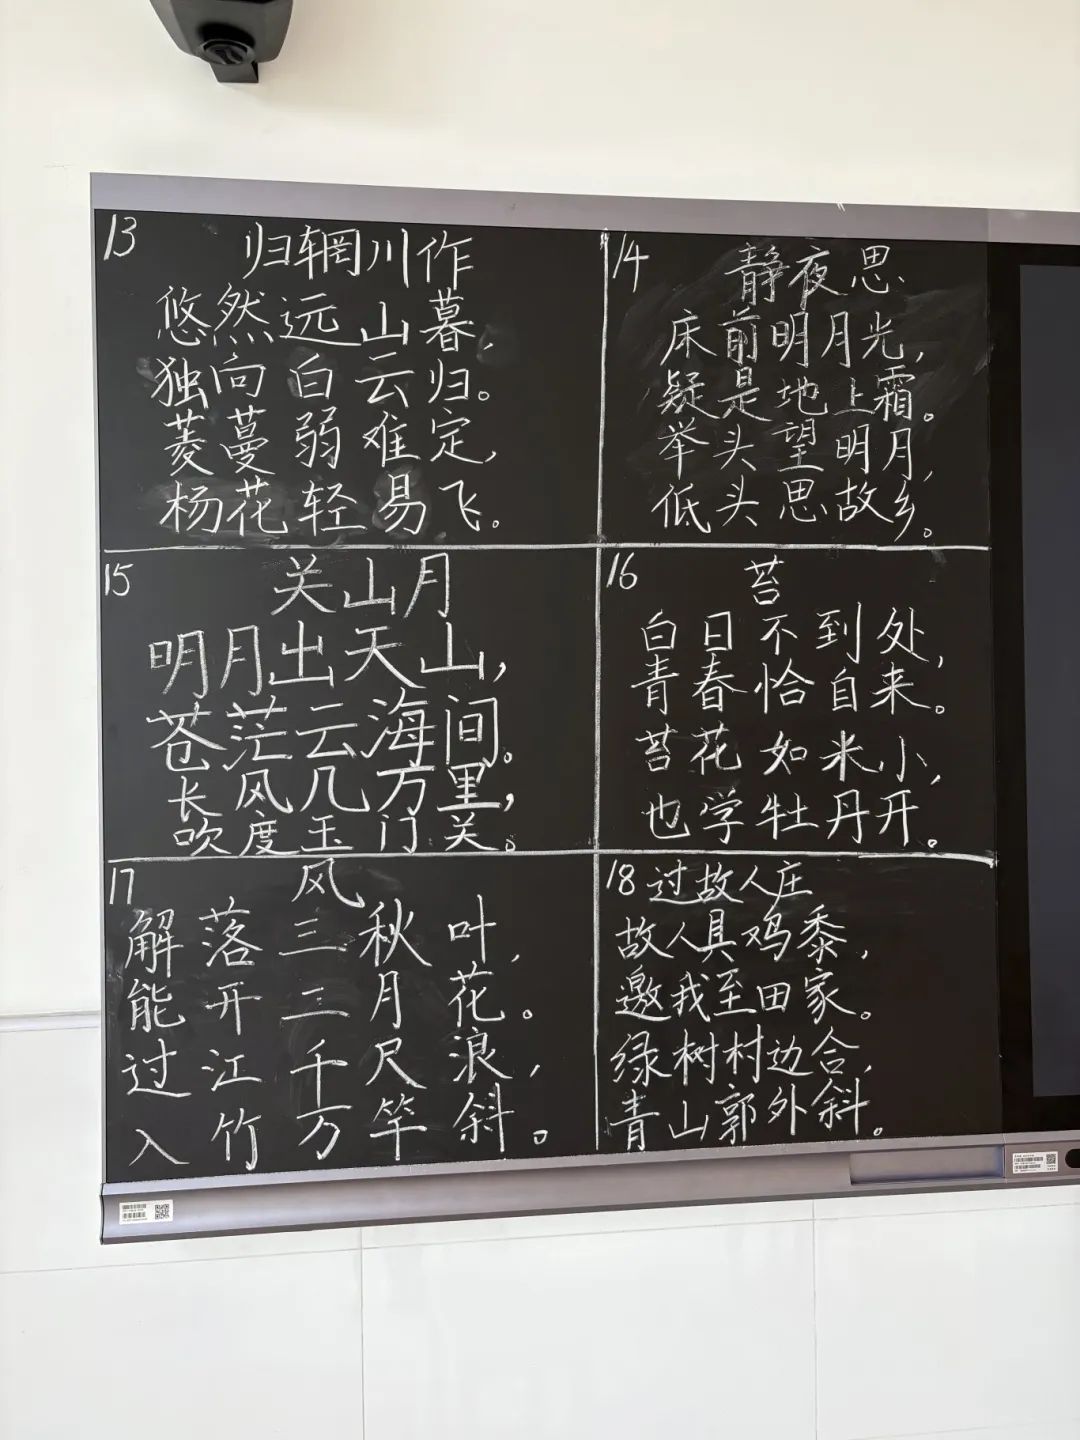 13
归辋川作
悠然远山暮，
独向白云归。
菱蔓弱难定，
杨花轻易飞。
14
静夜思
床前明月光，
疑是地上霜。
举头望明月，
低头思故乡。
15
关山月
明月出天山，
苍茫云海间。
长风几万里，
吹度玉门关。
16
苔
白日不到处，
青春恰自来。
苔花如米小，
也学牡丹开。
17
风
解落三秋叶，
能开二月花。
过江千尺浪，
入竹万竿斜。
18 过故人庄
故人具鸡黍，
邀我至田家。
绿树村边合，
青山郭外斜。